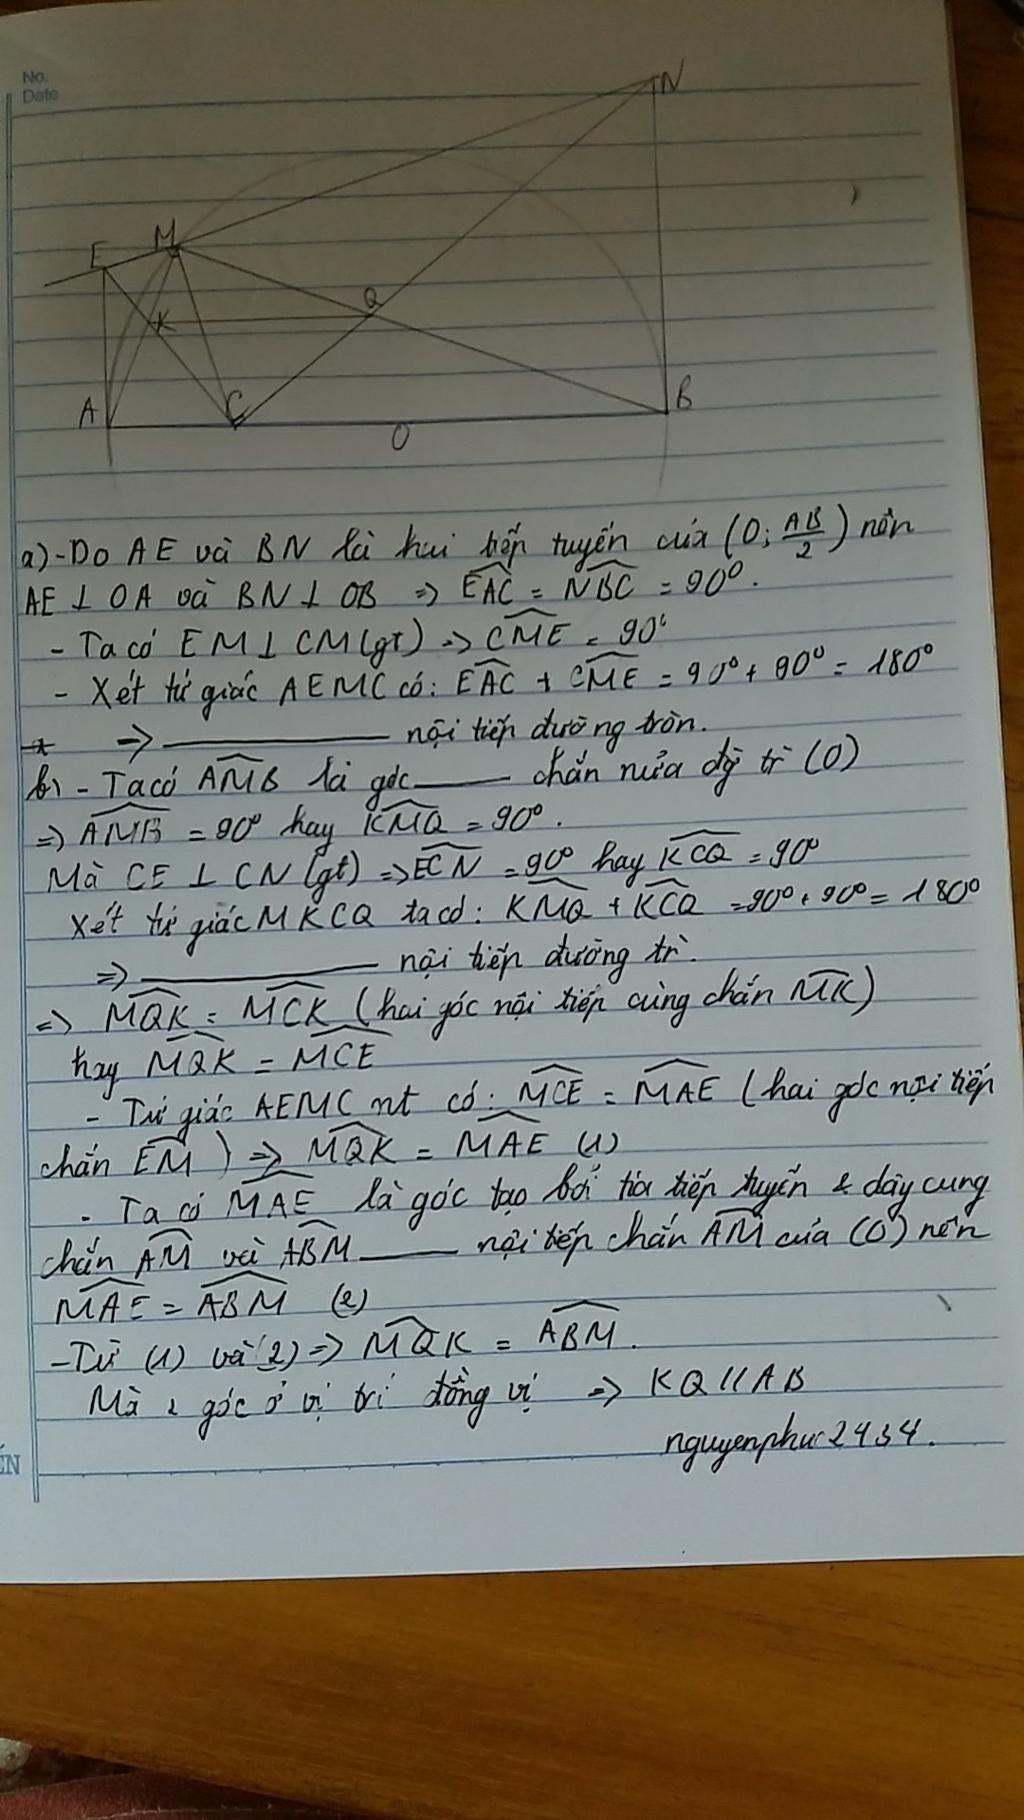 No.
Date
N
E M
K Q
A C O B
a) - Do AE và BN là hai tiếp tuyến của (O; AB/2) nên
AE ⊥ OA và BN ⊥ OB => \widehat{EAC} = \widehat{NBC} = 90°.
- Ta có EM ⊥ CM (gt) => \widehat{CME} = 90°
- Xét tứ giác AEMC có: \widehat{EAC} + \widehat{CME} = 90° + 90° = 180°
=> ——— nội tiếp đường tròn.
b) - Ta có \widehat{AMB} là góc ——— chắn nửa đg tr (O)
=> \widehat{AMB} = 90° hay \widehat{KMQ} = 90°.
Mà CE ⊥ CN (gt) => \widehat{ECN} = 90° hay \widehat{KCQ} = 90°
Xét tứ giác MKCQ ta có: \widehat{KMQ} + \widehat{KCQ} = 90° + 90° = 180°
=> ——— nội tiếp đường tr.
=> \widehat{MQK} = \widehat{MCK} (hai góc nội tiếp cùng chắn \widehat{MK})
hay \widehat{MQK} = \widehat{MCE}
- Tứ giác AEMC nt có: \widehat{MCE} = \widehat{MAE} (hai góc nội tiếp
chắn \widehat{EM}) => \widehat{MQK} = \widehat{MAE} (1)
- Ta có \widehat{MAE} là góc tạo bởi tia tiếp tuyến & dây cung
chắn \widehat{AM} và \widehat{ABM} ——— nội tiếp chắn \widehat{AM} của (O) nên
\widehat{MAE} = \widehat{ABM} (2)
- Từ (1) và (2) => \widehat{MQK} = \widehat{ABM}.
Mà 2 góc ở vị trí đồng vị => KQ // AB
nguyenphuc2434.